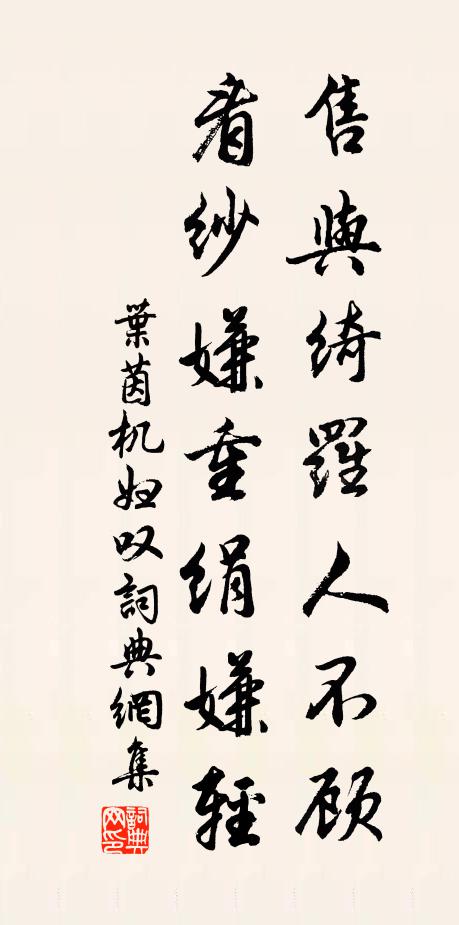 售與綺羅人不顾
看纱嫌重绢嫌輕
葉茵机妇叹詞典網集
詞典网印